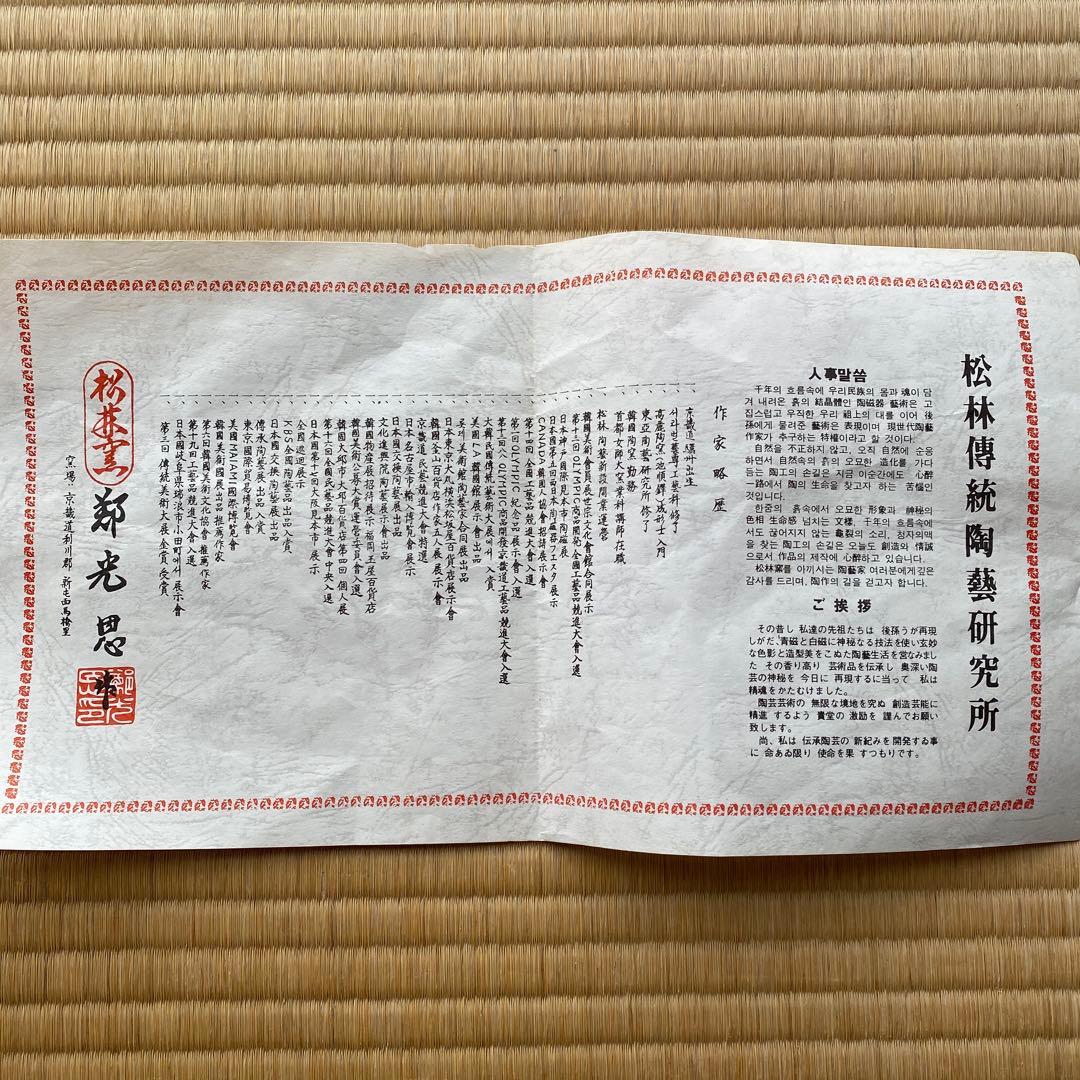 松林傳統陶藝研究所
人事말씀
千年의 흐름속에 우리民族의 몸과 魂이 담
겨 내려온 흙의 結晶體인 陶磁器 藝術은 고
집스럽고 우직한 우리 祖上의 대를 이어 後
孫에게 물려준 藝術은 表現이며 現世代陶藝
作家가 추구하는 特權이라고 할 것이다.
自然을 不正하지 않고, 오직 自然에 순응
하면서 自然속의 흙의 오묘한 造化를 가다
듬는 陶工의 손길은 지금 이순간에도 心醉
一路에서 陶의 生命을 찾고자 하는 苦惱인
것입니다.
한줌의 흙속에서 오묘한 形象과 神秘의
色相 生命感 넘치는 文樣, 千年의 흐름속에
서도 끊어지지 않는 龜裂의 소리, 청자의맥
을 찾는 陶工의 손길은 오늘도 創造와 情誠
으로서 作品의 제작에 心醉하고 있습니다.
松林窯를 아끼시는 陶藝家 여러분에게깊은
감사를 드리며, 陶作의 길을 걷고자 합니다.
ご挨拶
その昔し 私達の先祖たちは 後孫うが再現
しがだ、青磁と白磁に神秘なる技法を使い玄妙
な色影と造型美をこめた陶藝生活を営なみまし
た その香り高り 芸術品を伝承し 奥深い陶
芸の神秘を 今日に 再現するに当って 私は
精魂をかたむけました。
陶芸芸術の 無限な境地を究ぬ 創造芸能に
精進 するよう 貴堂の 激励を 謹んでお願い
致します。
尚、私は 伝承陶芸の 新紀みを開発するゐ事
に 命ある限り 使命を果 すつもりです。
作家略歷
京畿道驪州出生
서라벌藝專工藝科修了
高麗陶窯池順鐸氏成形士入門
東亞陶藝研究所修了
韓國陶窯勤務
首都女師大窯業科講師在職
松林陶藝新設開業運營
韓國美術會會員展世宗文化會館合同展示
第十三回OLYMPIC商品開発全國工藝品競進大會入選
日本神戸國際見本市陶磁展
日本國第五回西日本陶磁器フェスタ展示
CANADA韓國人協會招請展示會
第十四回全國工藝品競進大會入選
第一回OLYMPIC紀念品展示會入選
第十三回八八OLYMPIC商品開發京畿道工藝品競進大會入選
大韓民國傳統藝術大展에서入賞
美國LA韓國館展示會出品
일본美術館陶藝家合同展出品
日本東京大阪橫浜松坂屋百貨店展示會
韓國釜山百貨店作家五人展示會
京畿道民藝競進大會特選
日本名古屋市輸入博覧會展示
日本國交換陶藝展出品
文化進興院陶藝展示會
韓國物産展招待展示福岡玉屋百貨店
韓國美術公募大賞運営委員會入選
韓國大邱市大邱百貨店第四回個人展
第十六回全國民藝品競進大會中央入選
日本國第十七回大阪見本市展示
全國巡廻展示
KBS全國陶藝品出品入賞
日本國交換陶藝展出品
傳承陶藝展出品入賞
東京國際貿易博覧會
美國MAIAMI國際博覧會
韓國美術國展出品推薦作家
第六回韓國美術文化協會推薦作家
第十九回工藝品競進大會入選
日本國岐阜県瑞浪市小田町에서展示會
第三回傳統美術大展金賞受賞
松林窯
鄭光思
作
窯場：京畿道利川郡新屯面馬橋里